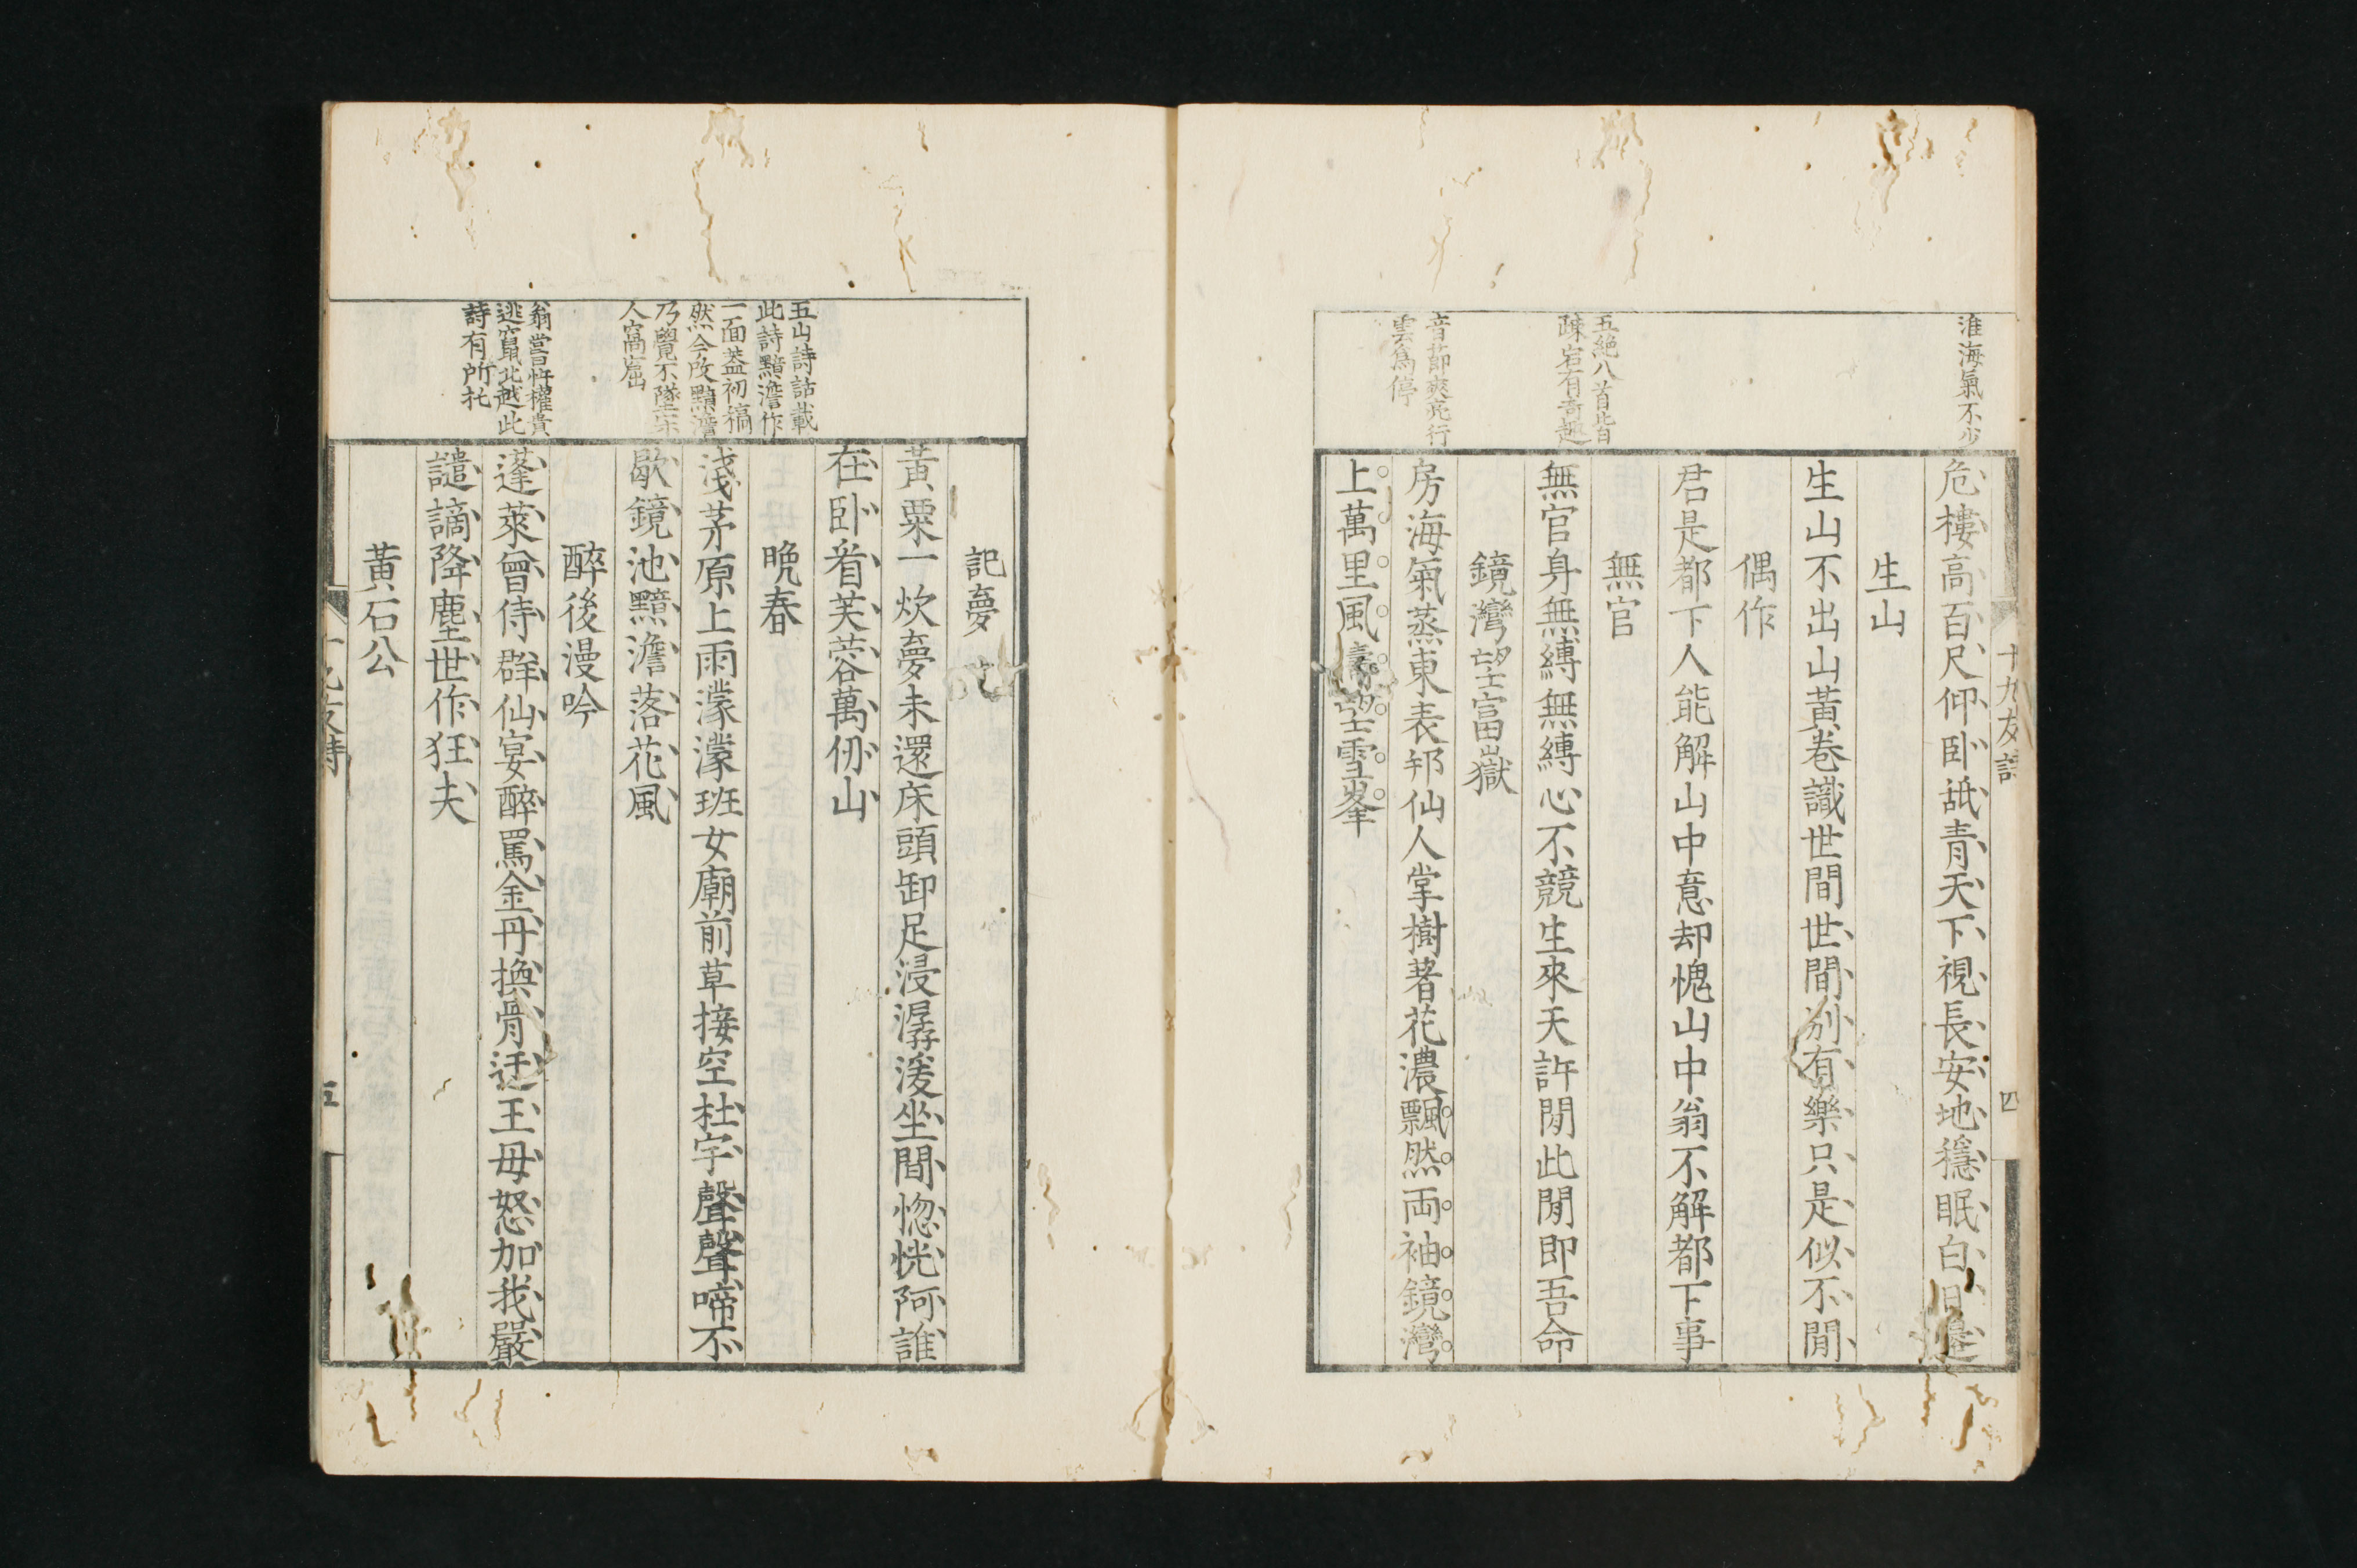 十九友詩
四
淮海氣不少
危樓高百尺仰卧舐青天下視長安地穩眠白日邊
生山
生山不出山黃巻識世間世間別有樂只是似不閒
偶作
君是都下人能解山中意却愧山中翁不解都下事
五絕八首皆自
疎宕有奇趣
無官
無官身無縛無縛心不競生來天許閒此閒即吾命
鏡灣望富嶽
音節爽亮行
雲爲停
房海氣蒸東表邦仙人掌樹著花濃飄然両袖鏡灣
上萬里風濤望雪峯
記夢
黃粟一炊夢未還床頭卸足浸潺湲坐間惚恍阿誰
在卧看芙蓉萬仞山
五山詩話載
此詩黯澹作
一面葢初稿
然今改黯澹
乃覺不墜宋
人窩窟
晩春
淺茅原上雨濛濛班女廟前草接空杜宇聲聲啼不
歇鏡池黯澹落花風
翁嘗忤權貴
逃竄北越此
詩有所托
醉後漫吟
蓬萊曾侍群仙宴醉罵金丹換骨迂王母怒加我嚴
譴謫降塵世作狂夫
黃石公
十九友詩
五